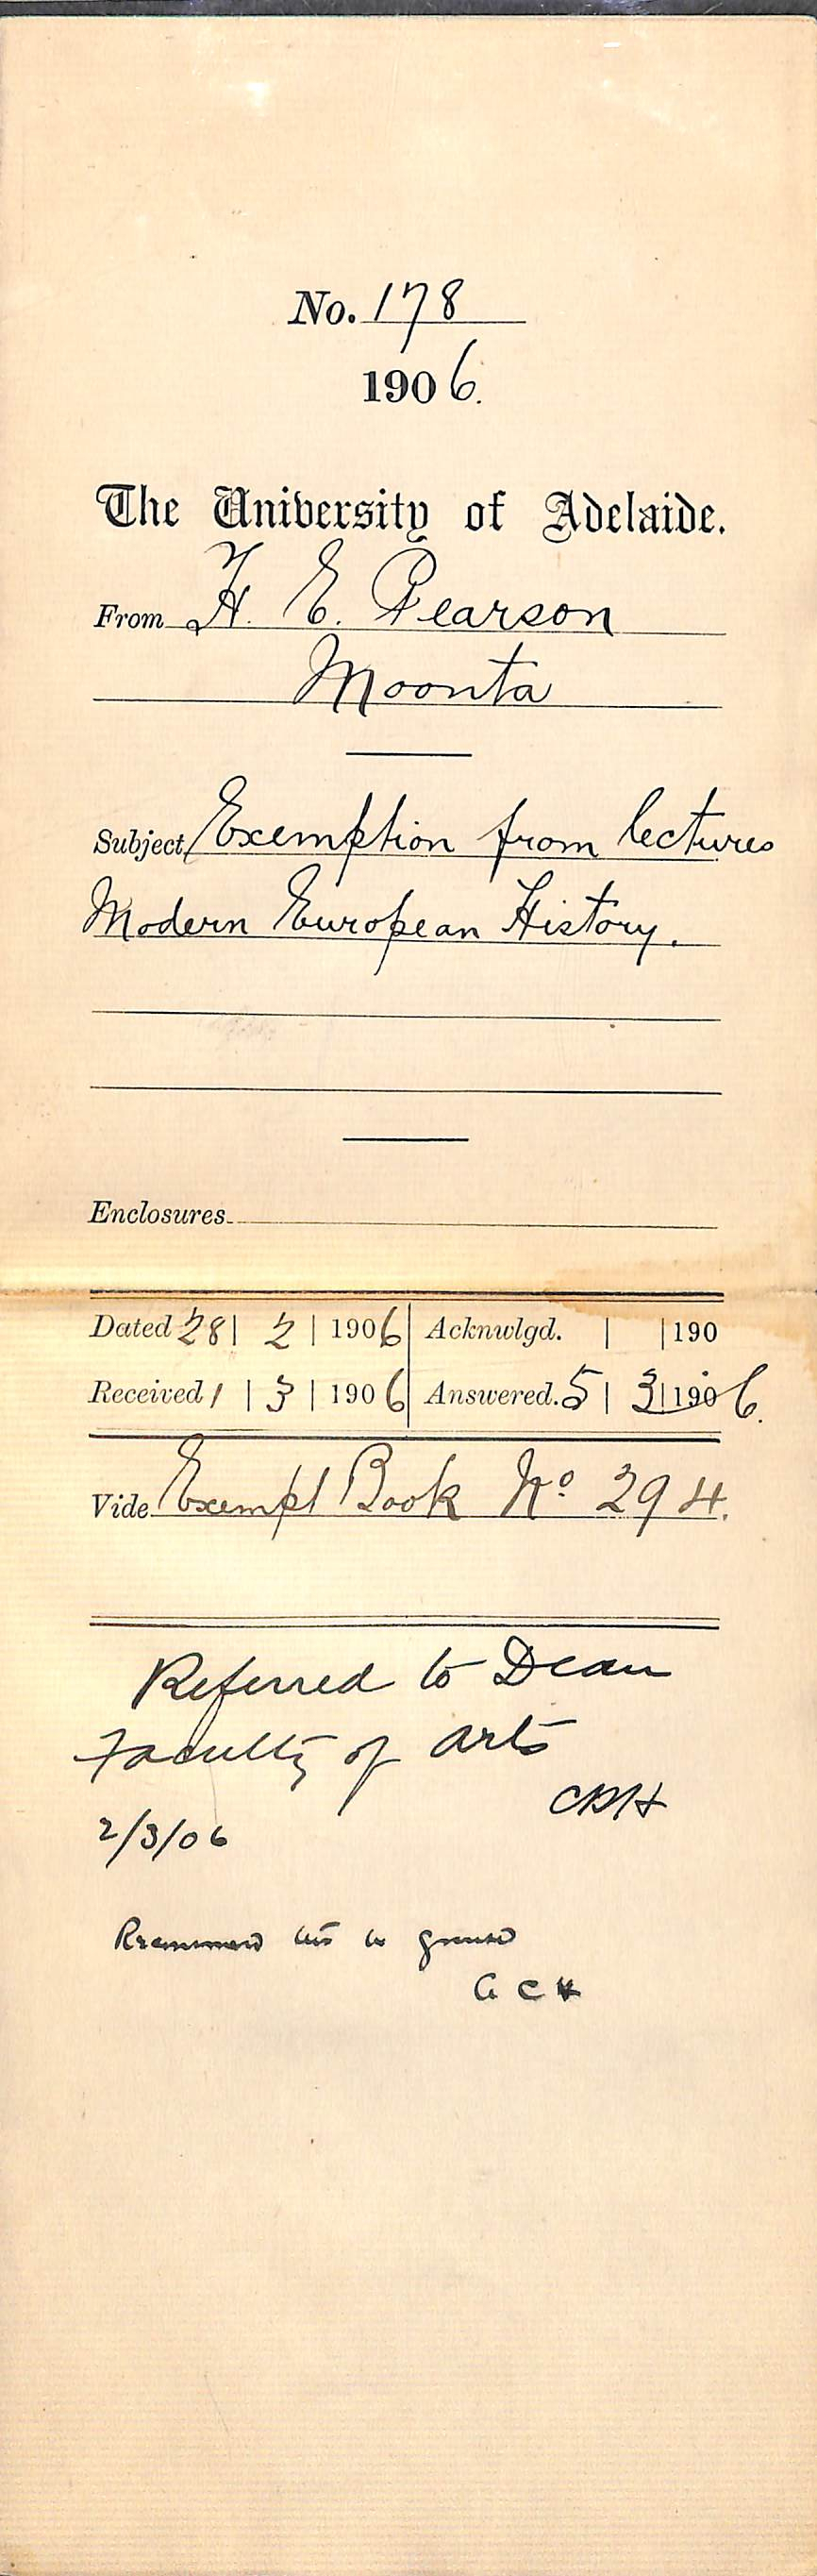 No. 178
1906.
The University of Adelaide.
From H. E. Pearson
Moonta
Subject Exemption from lectures
Modern European History.
Enclosures
Dated 28 | 2 | 1906 | Acknwlgd. | | 190
Received 1 | 3 | 1906 | Answered. 5 | 3 | 1906.
Vide Exempt Book No 294.
Referred to Dean
Faculty of Arts
2/3/06
Recommend be granted